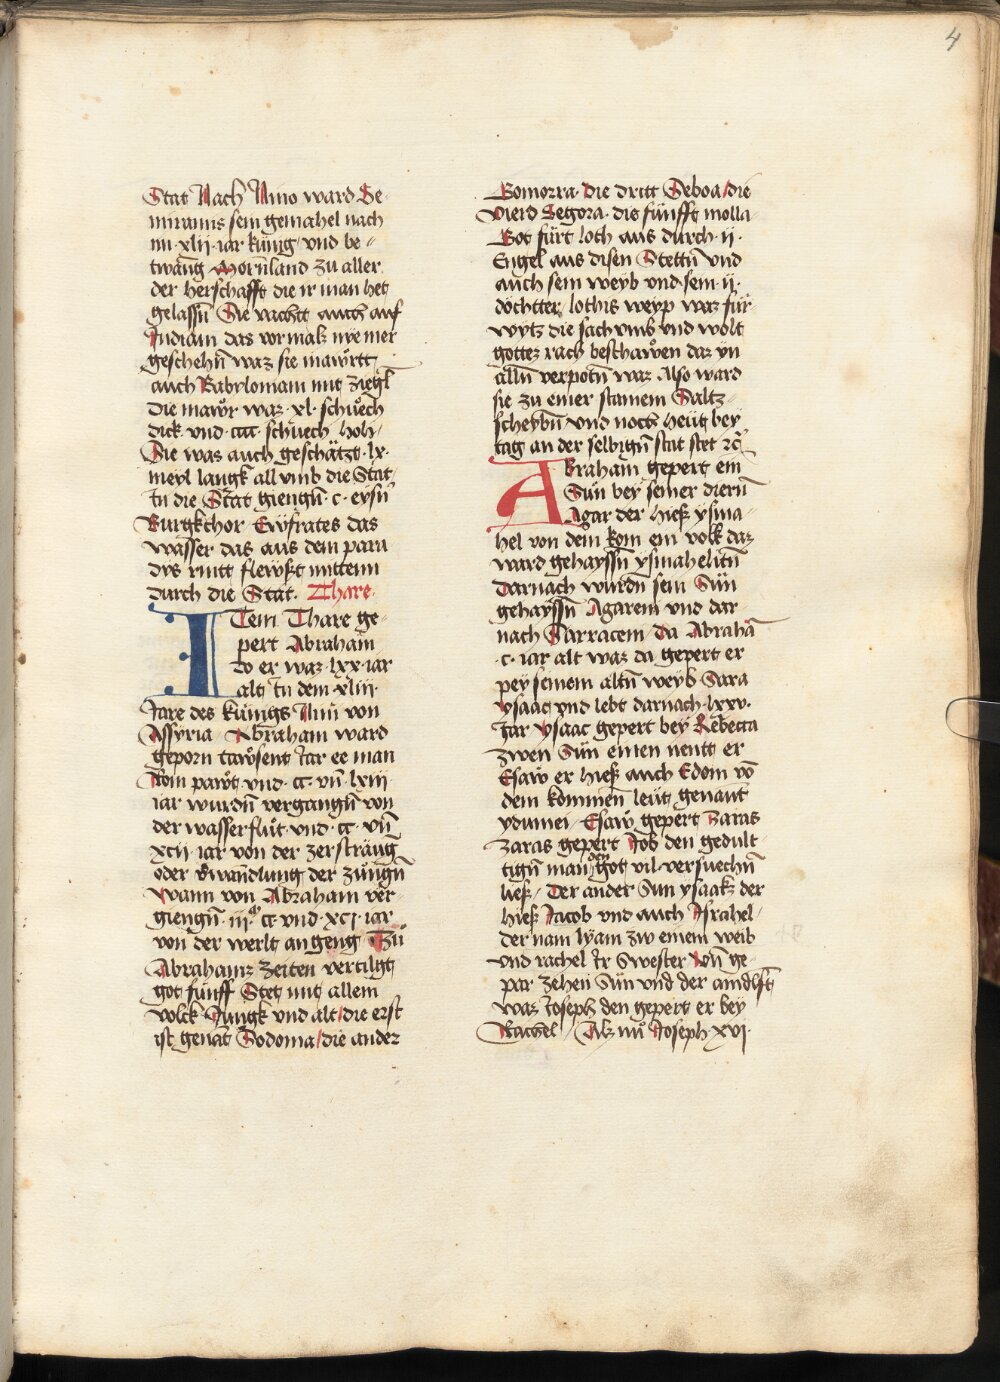 4
Stat Nach Nino ward Se-
miramis sein gemahel nach
im xlii iar künig vnd be-
twang Morñland zu aller
der herschafft die ir man het
gelassñ Sie vachtt auch auf
Indiam das vor malz nye mer
geschehñ waz sie mawrtt
auch Babyloniam mit ziegl
die mawr waz xl schuech
dick vnd ccc schuech hoh
Sie was auch geschätzt lx
meyl langk all vmb die Stat
In die Stat giengñ c eysñ
Burgkthor Ewfrates das
wasser das aus dem para
dys rint flewsst mittenn
durch die Stat. Thare
ITem Thare ge-
pert Abraham
do er waz lxx iar
alt In dem xliii
Jare des künigs Nini von
Assyria Abraham ward
geporn tawsent Jar ee man
Rom pawt vnd cc vñ lxiii
iar wurdñ vergangñ von
der wasserflüt vnd cc vñ
xcii iar von der zersträug
oder verwandlung der züngñ
Wann von Abraham ver-
giengñ iii cc vnd xci iar
von der werlt angeng Zu
Abrahams zeiten vertilgt
got fünff Stet mit allem
volck Jungk vnd alt die erst
ist genāt Sodoma die ander
Gomorra die dritt Seboa die
vierd Segora die fünfft molla
Got fürt loth aus durch ii
Engel aus disen Stettñ vnd
auch sein weyb vnd sein ii
döchtter lothis weyp waz für
wytz die sach vmb vnd wolt
gottez rach beschawen daz yn
allñ verpotñ waz Also ward
sie zu einer stainem Saltz-
scheybñ vnd noch heüt bey
tag an der selbigñ stat stet rc
Abraham gepert ein
Sün bey seiner diern
Agar der hiess ysma-
hel von dem kom ein volk daz
ward gehayssñ ysmahelitñ
Darnach wurdñ sein Sün
gehayssñ Agareni vnd dar-
nach Sarraceni Da Abrahā
c iar alt waz da gepert er
pey seinem altñ weyb Sara
ysaac vnd lebt darnach lxxv
Jar ysaac gepert bey Rebecca
zwen Sün einen nentt er
Esaw er hiess auch Edom vō
dem kommen leüt genant
ydumei Esaw gepert Zaras
Zaras gepert Job den gedult
tigñ man den got vil versuechñ
liess Der ander Sun ysaaks der
hiess Jacob vnd auch Israhel
der nam lyam zw einem weib
vnd rachel Ir Swester vñ ge-
par zehen Sün vnd der aindlft
was Joseph den gepert er bey
Rachel Alz nu Joseph xvi